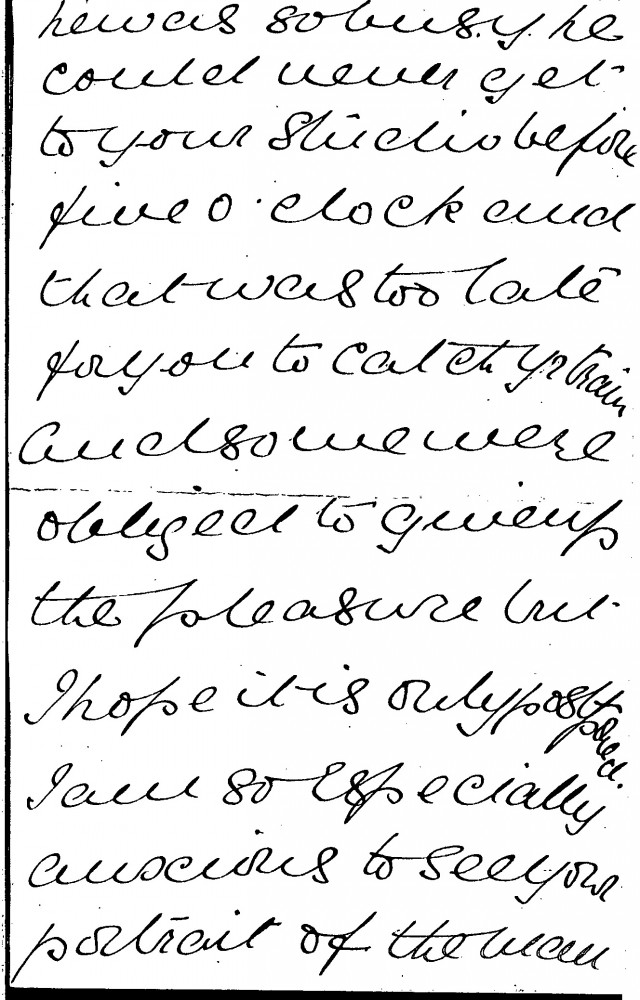 he was so busy he
could never get
to your Studio before
five o'clock and
that was too late
for you to catch yr train
And so we were
obliged to give up
the pleasure but
I hope it is only postponed.
I am so Especially
anxious to see your
portrait of the man